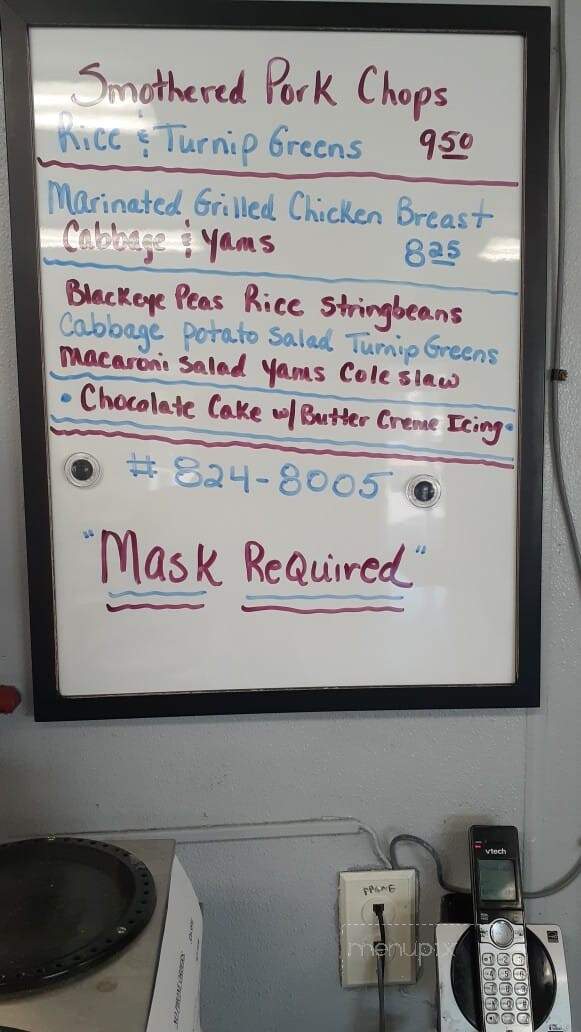 Smothered Pork Chops
Rice & Turnip Greens 9.50
Marinated Grilled Chicken Breast
Cabbage & Yams 8.25
Blackeye Peas Rice Stringbeans
Cabbage Potato Salad Turnip Greens
Macaroni Salad Yams Cole slaw
• Chocolate Cake w/ Butter Creme Icing •
# 824-8005
"Mask Required"
PHONE
vtech
menupix